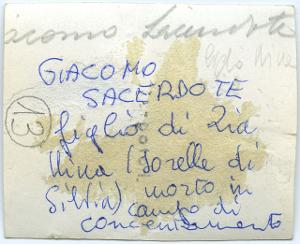 Giacomo Sacerdote
GIACOMO
SACERDOTE
13
figlio di Zia
Nina (sorella di
Silvia) morto in
campo di
concentramento